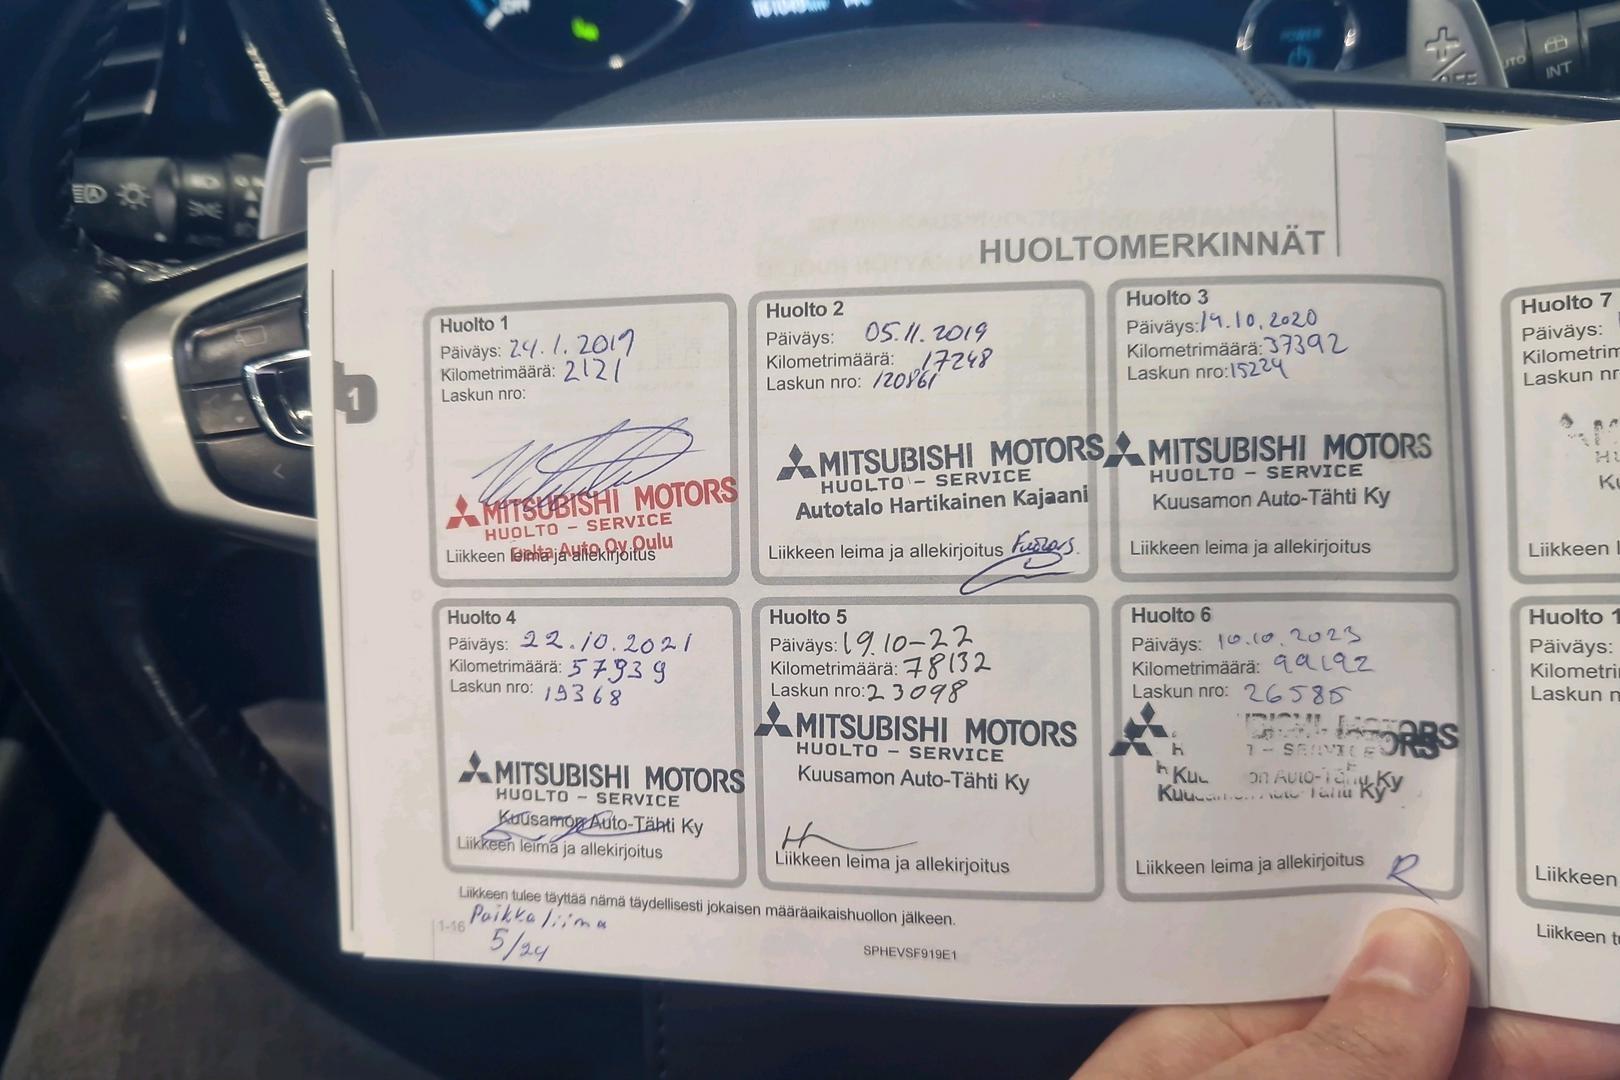 INT
HUOLTOMERKINNÄT
1
Huolto 1
Päiväys: 24.1.2019
Kilometrimäärä: 2121
Laskun nro:
MITSUBISHI MOTORS
HUOLTO - SERVICE
Delta Auto Oy Oulu
Liikkeen leima ja allekirjoitus
Huolto 2
Päiväys: 05.11.2019
Kilometrimäärä: 17248
Laskun nro: 120861
MITSUBISHI MOTORS
HUOLTO - SERVICE
Autotalo Hartikainen Kajaani
Liikkeen leima ja allekirjoitus
Huolto 3
Päiväys: 14.10.2020
Kilometrimäärä: 37392
Laskun nro: 15224
MITSUBISHI MOTORS
HUOLTO - SERVICE
Kuusamon Auto-Tähti Ky
Liikkeen leima ja allekirjoitus
Huolto 7
Päiväys:
Kilometrim
Laskun nr
Liikkeen l
Huolto 4
Päiväys: 22.10.2021
Kilometrimäärä: 57939
Laskun nro: 19368
MITSUBISHI MOTORS
HUOLTO - SERVICE
Kuusamon Auto-Tähti Ky
Liikkeen leima ja allekirjoitus
Huolto 5
Päiväys: 19.10-22
Kilometrimäärä: 78132
Laskun nro: 23098
MITSUBISHI MOTORS
HUOLTO - SERVICE
Kuusamon Auto-Tähti Ky
Liikkeen leima ja allekirjoitus
Huolto 6
Päiväys: 10.10.2023
Kilometrimäärä: 99192
Laskun nro: 26585
MOTORS
SERVICE
Auto-Tähti Ky
Liikkeen leima ja allekirjoitus
R
Huolto 1
Päiväys:
Kilometri
Laskun n
Liikkeen
Liikkeen tulee täyttää nämä täydellisesti jokaisen määräaikaishuollon jälkeen.
1-16 Paikkaliima
5/24
SPHEVSF919E1
Liikkeen tu